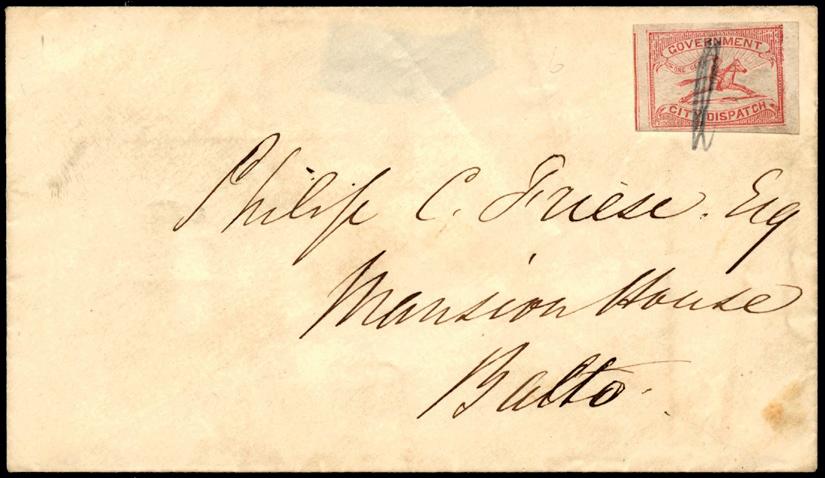 GOVERNMENT
ONE CENT
CITY DISPATCH
Philip C. Friese. Esq
Mansion House
Balto.